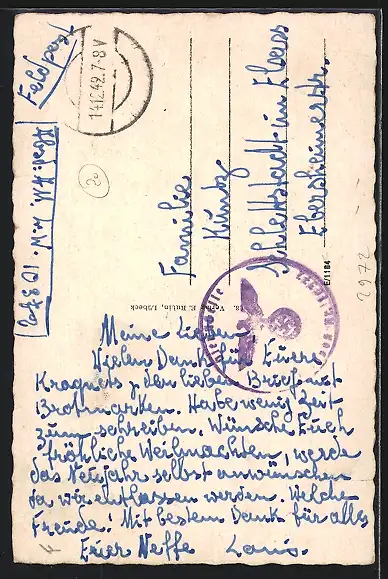 Feldpost
14.12.42.7-8V
20
Familie
Kuntz
Schlettstadt im Elsass
Ebersheimerstr.
E/1184
2972
Verlag E. Rutin, Lübeck
Dienststelle
Meine Lieben
Vielen Dank für Euere
den lieben Brief mit
Brotmarken. Habe wenig Zeit
zum schreiben. Wünsche Euch
fröhliche Weihnachten, werde
das Neujahr selbst anwünschen
da wir entlassen werden. Welche
Freude! Mit bestem Dank für alles
Euer Neffe Louis.